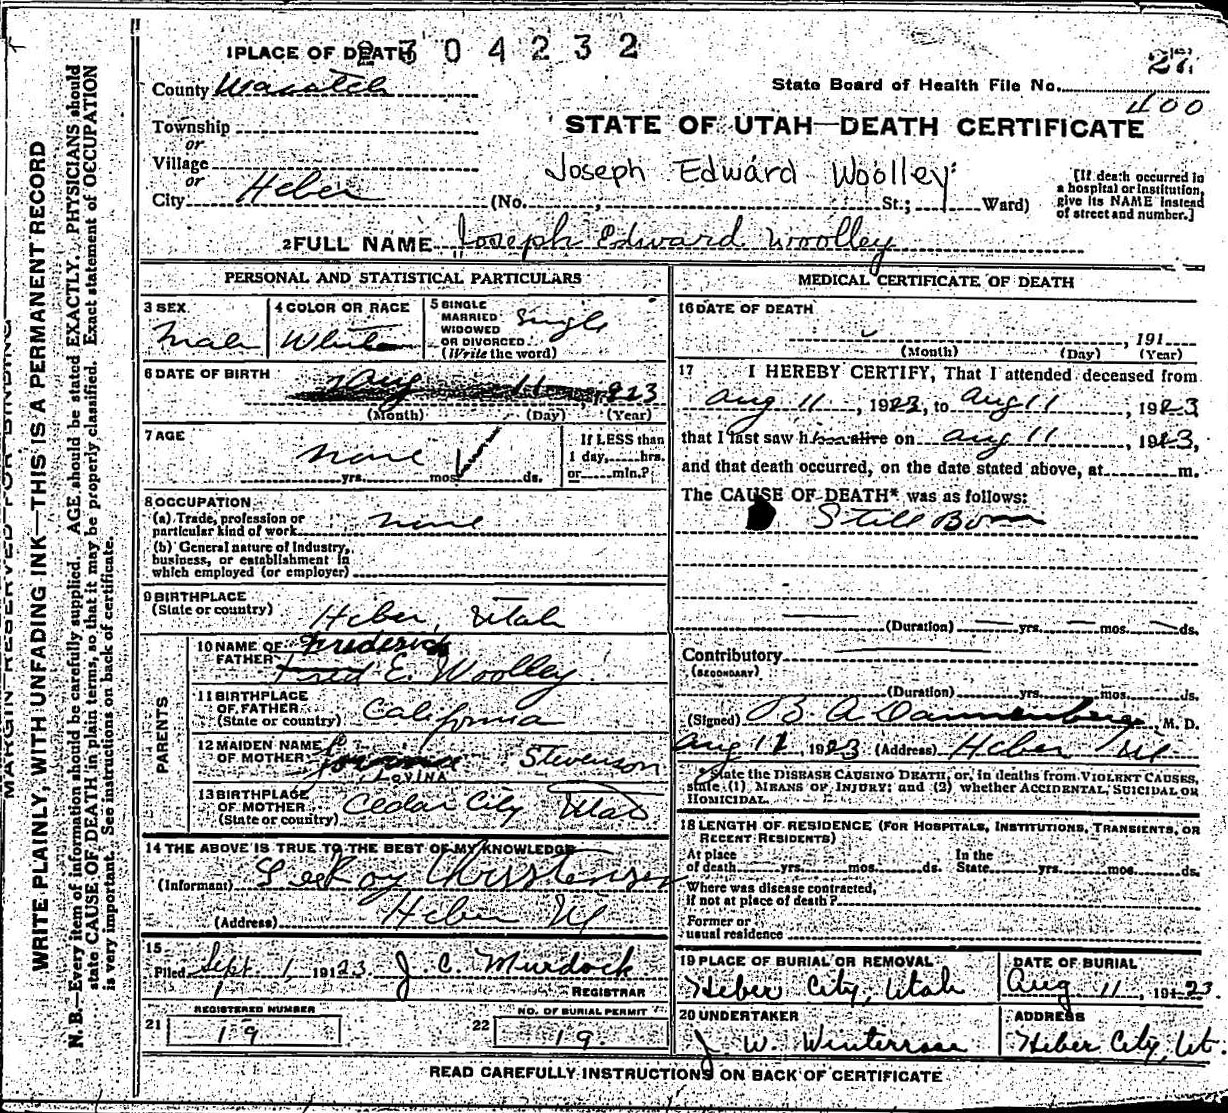 1 PLACE OF DEATH
2304232
County Wasatch
Township
or
Village
or
City Heber
(No. , St.; Ward)
27
State Board of Health File No.
400
STATE OF UTAH—DEATH CERTIFICATE
Joseph Edward Woolley
[If death occurred in
a hospital or institution,
give its NAME instead
of street and number.]
2 FULL NAME Joseph Edward Woolley
PERSONAL AND STATISTICAL PARTICULARS
3 SEX
Male
4 COLOR OR RACE
White
5 SINGLE
MARRIED
WIDOWED
OR DIVORCED.
(Write the word)
Single
6 DATE OF BIRTH
Aug 11, 1923
(Month) (Day) (Year)
7 AGE
none
yrs. mos. ds.
If LESS than
1 day, hrs.
or min.?
8 OCCUPATION
(a) Trade, profession or
particular kind of work none
(b) General nature of Industry,
business, or establishment in
which employed (or employer)
9 BIRTHPLACE
(State or country)
Heber, Utah
PARENTS
10 NAME OF
FATHER
Frederick
Fred E. Woolley
11 BIRTHPLACE
OF FATHER
(State or country)
California
12 MAIDEN NAME
OF MOTHER
Stevenson
LOVINA
13 BIRTHPLACE
OF MOTHER
(State or country)
Cedar City Utah
14 THE ABOVE IS TRUE TO THE BEST OF MY KNOWLEDGE
(Informant) LeeRoy Christensen
(Address) Heber Ut
15
Filed Sept. 1, 1923 J C Murdock
REGISTRAR
21 REGISTERED NUMBER
19
22 NO. OF BURIAL PERMIT
19.
MEDICAL CERTIFICATE OF DEATH
16 DATE OF DEATH
, 191
(Month) (Day) (Year)
17 I HEREBY CERTIFY, That I attended deceased from
Aug 11, 1923, to Aug 11, 1923,
that I last saw him alive on Aug 11, 1923,
and that death occurred, on the date stated above, at m.
The CAUSE OF DEATH* was as follows:
Still Born
(Duration) yrs. mos. ds.
Contributory
(SECONDARY)
(Duration) yrs. mos. ds.
(Signed) B A Dannenberg M. D.
Aug 11 1923 (Address) Heber Ut
State the DISEASE CAUSING DEATH, or, in deaths from VIOLENT CAUSES,
state (1) MEANS OF INJURY; and (2) whether ACCIDENTAL, SUICIDAL OR
HOMICIDAL.
18 LENGTH OF RESIDENCE (FOR HOSPITALS, INSTITUTIONS, TRANSIENTS, OR
RECENT RESIDENTS)
At place
of death yrs. mos. ds.
In the
State yrs. mos. ds.
Where was disease contracted,
if not at place of death?
Former or
usual residence
19 PLACE OF BURIAL OR REMOVAL
Heber City, Utah
DATE OF BURIAL
Aug 11, 1923.
20 UNDERTAKER
J. W. Winterrose
ADDRESS
Heber City, Ut.
READ CAREFULLY INSTRUCTIONS ON BACK OF CERTIFICATE
MARGIN RESERVED FOR BINDING
WRITE PLAINLY, WITH UNFADING INK—THIS IS A PERMANENT RECORD
N. B.—Every item of information should be carefully supplied. AGE should be stated EXACTLY. PHYSICIANS should
state CAUSE OF DEATH in plain terms, so that it may be properly classified. Exact statement of OCCUPATION
is very important. See instructions on back of certificate.